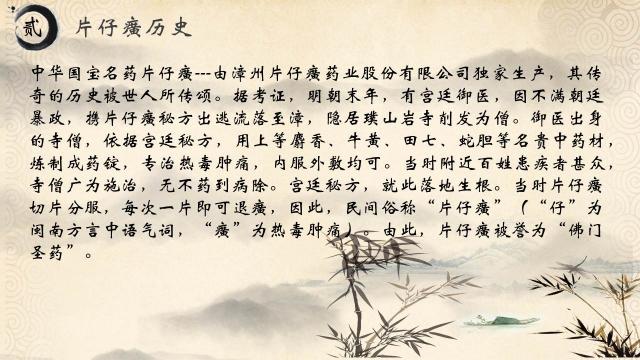 贰
片仔癀历史
中华国宝名药片仔癀---由漳州片仔癀药业股份有限公司独家生产，其传
奇的历史被世人所传颂。据考证，明朝末年，有宫廷御医，因不满朝廷
暴政，携片仔癀秘方出逃流落至漳，隐居璞山岩寺削发为僧。御医出身
的寺僧，依据宫廷秘方，用上等麝香、牛黄、田七、蛇胆等名贵中药材，
炼制成药锭，专治热毒肿痛，内服外敷均可。当时附近百姓患疾者甚众，
寺僧广为施治，无不药到病除。宫廷秘方，就此落地生根。当时片仔癀
切片分服，每次一片即可退癀，因此，民间俗称“片仔癀”（“仔”为
闽南方言中语气词，“癀”为热毒肿痛）。由此，片仔癀被誉为“佛门
圣药”。